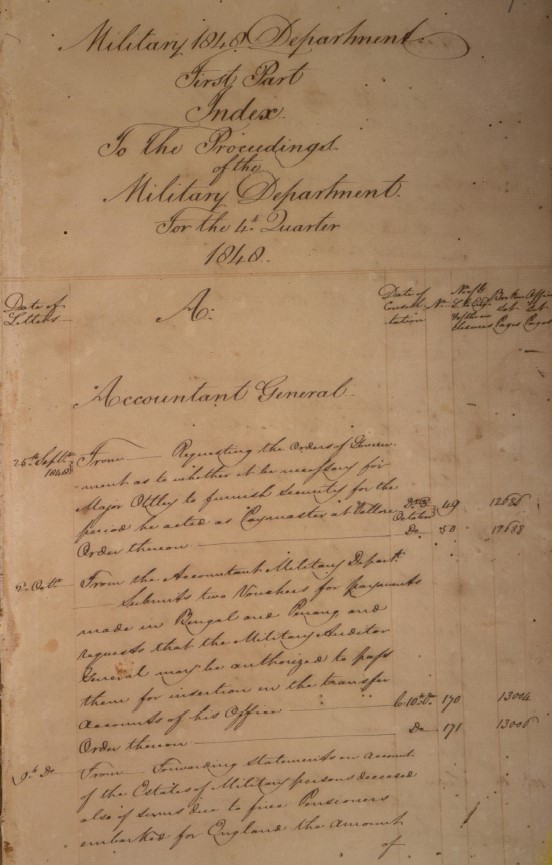 Military 1848 Department
First Part
Index
To the Proceedings
of the
Military Department.
For the 4th Quarter
1848.
Date of
Letters
A:
Date of
Consul-
tation
No.
Pages Pages
Accountant General
25th Septr.
1848
From — Requesting the Orders of Govern-
ment as to whether it be necessary for
Major Ottley to furnish Security for the
period he acted as Paymaster at Vellore
October 49 12686
Order thereon — Do. 50 12688
2d. Octr. From the Accountant Military Departt.
Submits two Vouchers for payments
made in Bengal and Penang and
requests that the Military Auditor
General may be authorized to pass
them for insertion in the transfer
Accounts of his Office — 10th 170 13004
Order thereon — Do 171 13006
9th Do From — Forwarding Statements on account
of the Estates of Military persons deceased
also of sums due to free Pensioners
embarked for England the amount
of